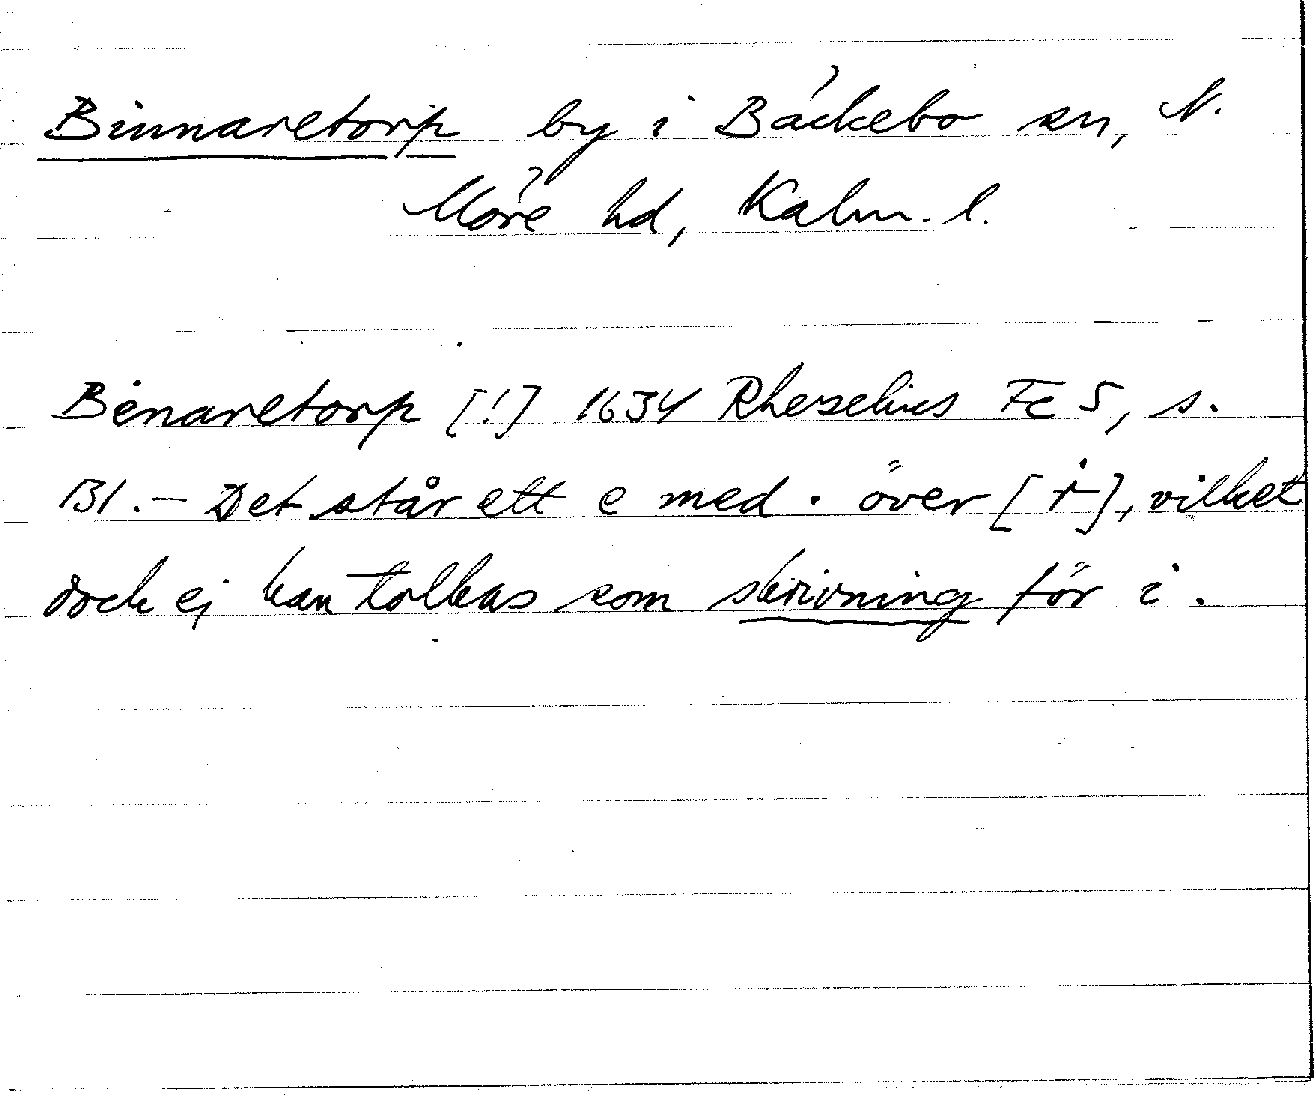 Binnaretorp by i Bäckebo sn, N.
Möre hd, Kalm. l.
Bėnaretorp [!] 1634 Rhezelius Fc 5, s.
131. – Det står ett e med · över [ ], vilket
dock ej kan tolkas som skrivning för i.